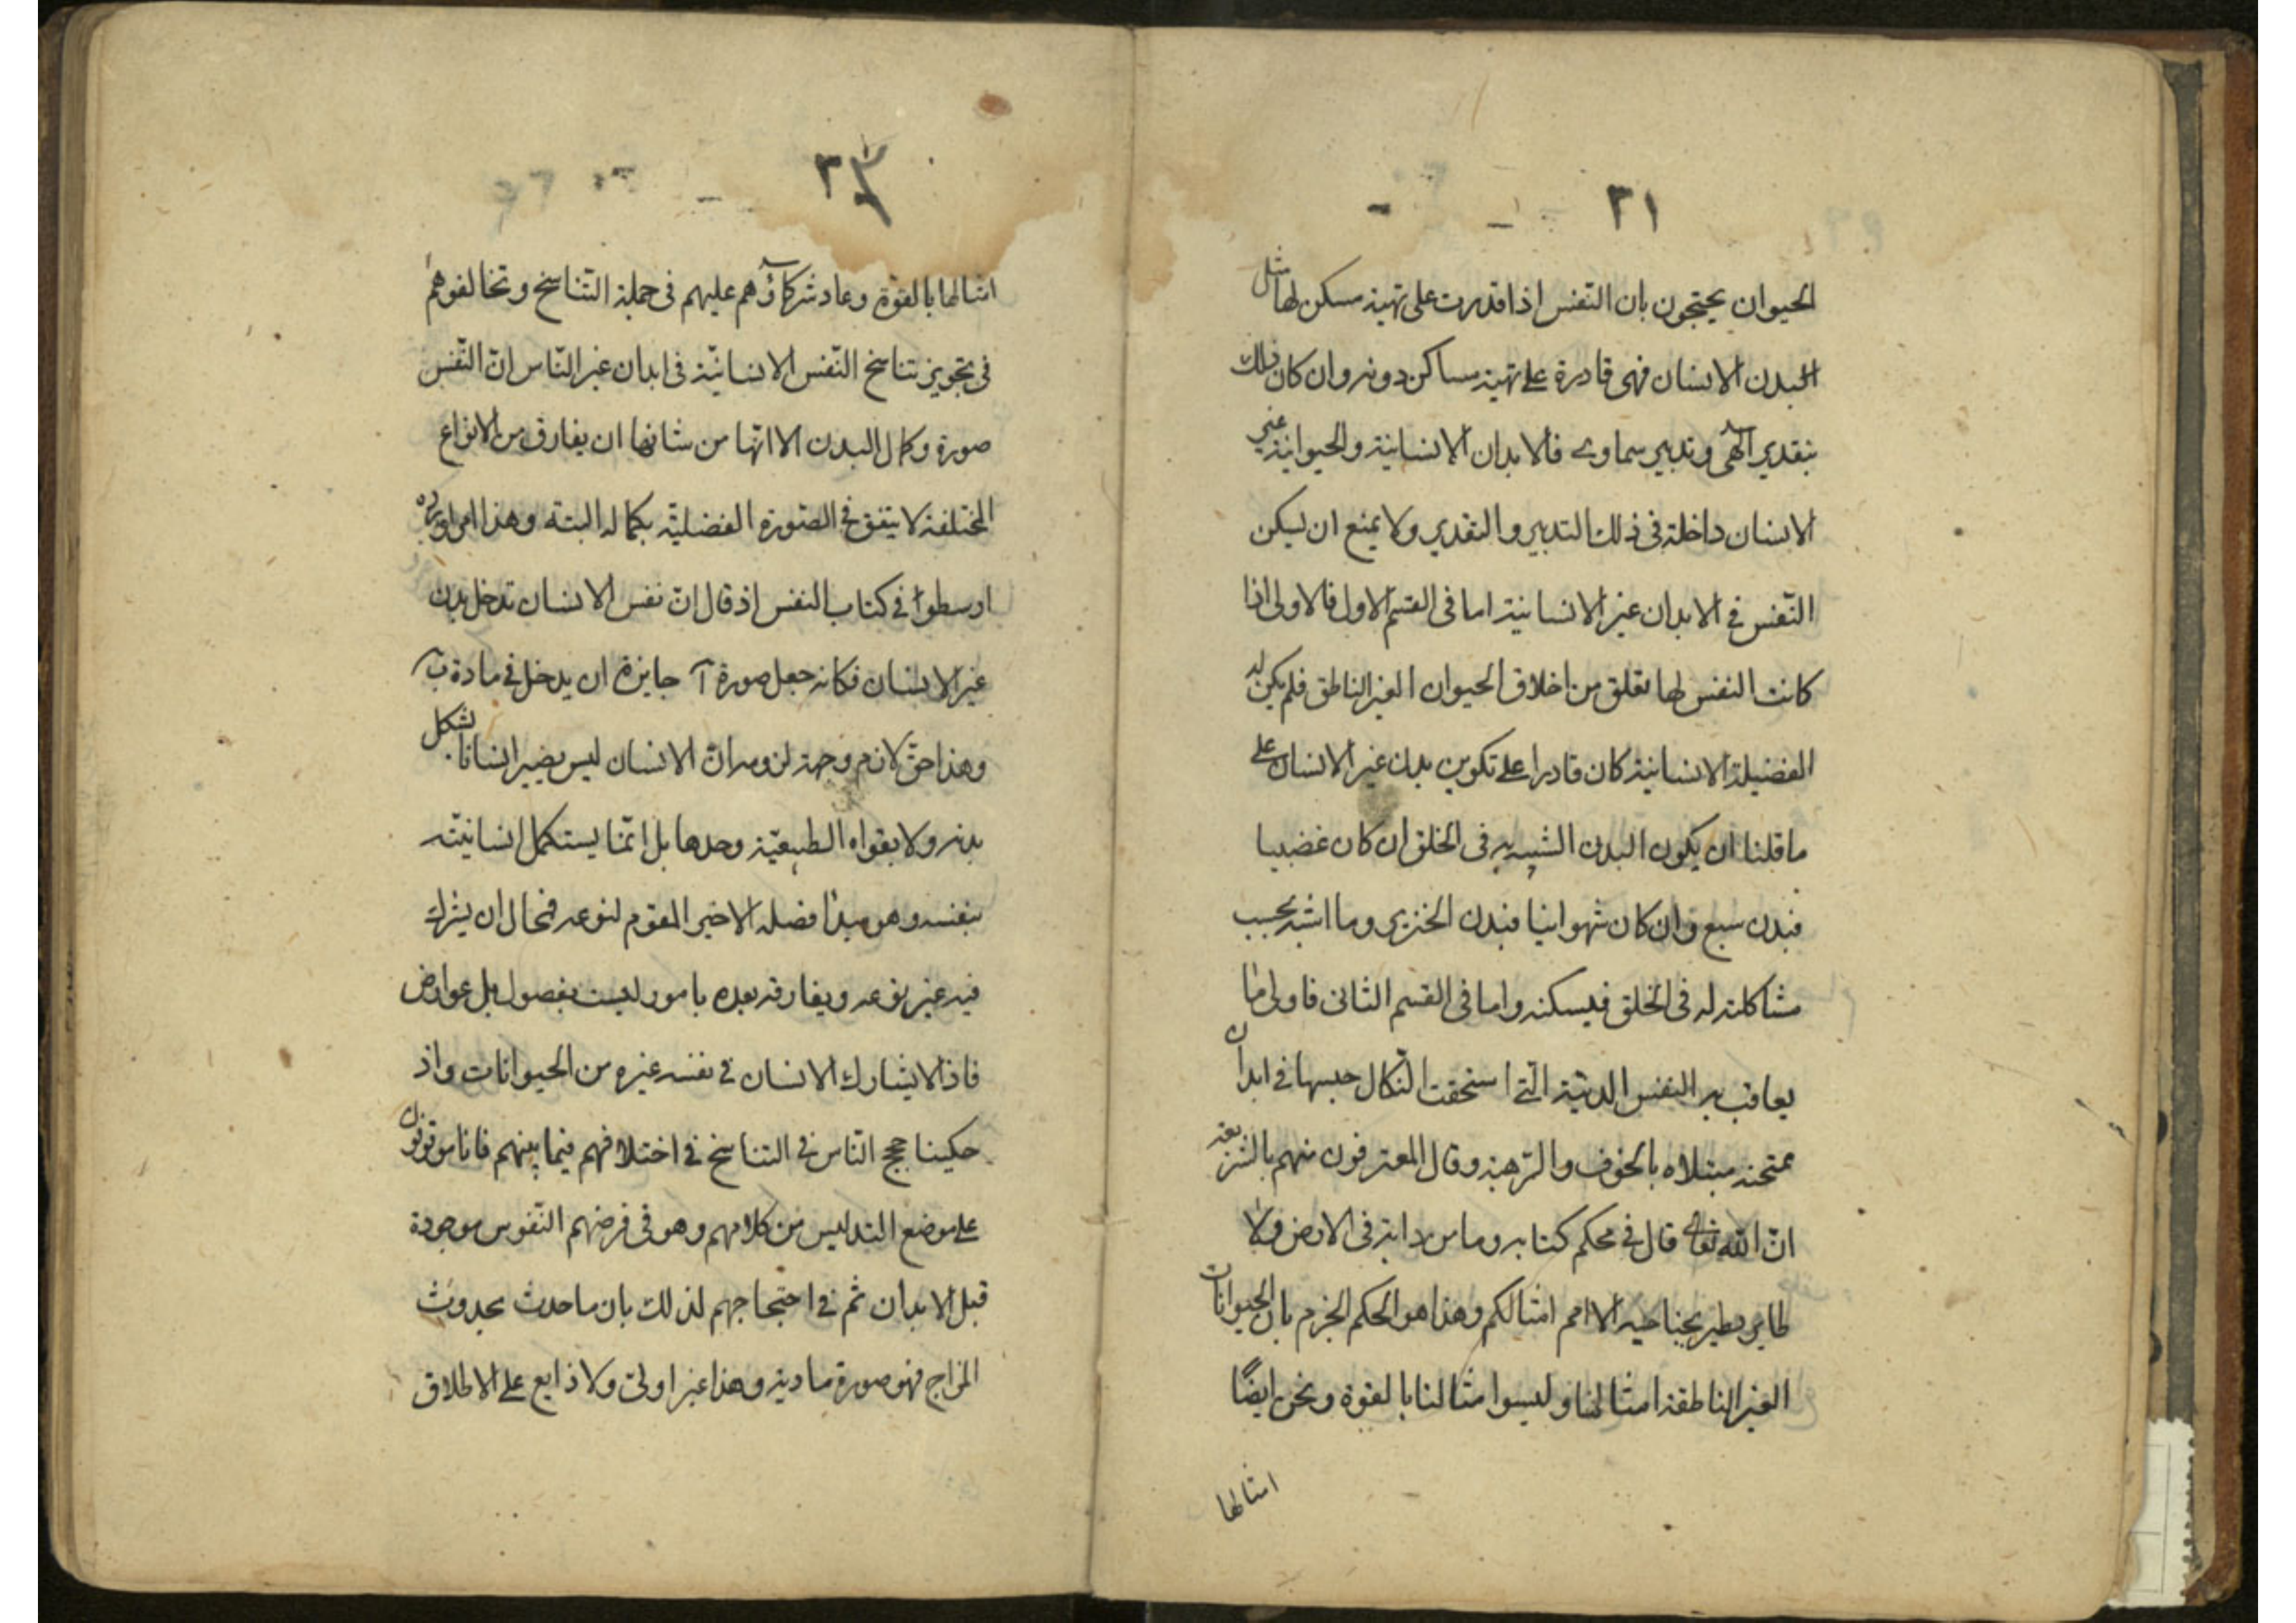 ٢١
الحيوان يحتجون بان النّفس اذا قدرت على تهية مسكن لها مثل
البدن الانسان فهى قادرة على تهية مساكن دونه وان كان ذلك
بتقدير الٓهى وتدبير سماوى فالابدان الانسانية والحيوانية غير
الانسان داخلة فى ذلك التدبير والتقدير ولا يمنع ان يسكن
النّفس فى الابدان غير الانسانية اما فى القسم الاول فالاولى اذا
كانت النفس لها تعلق من اخلاق الحيوان الغير الناطق فلم يكن له
الفضيلة الانسانية كان قادرا على تكوين بدن غير الانسان على
ما قلنا ان يكون البدن الشبيه به فى الخلق ان كان غضبيا
فبدن سبع وان كان شهوانيا فبدن الخنزير وما اشبه بحسب
مشاكلته له فى الخلق فيسكنه واما فى القسم الثانى فاولى ما
يعاقب به النفس الدنيّة الّتى استحقت النّكال حبسها فى ابدان
ممتحنه مبتلاه بالخوف والرّهبة وقال المعترفون منهم بالشريعة
انّ اللّه تعالى قال فى محكم كتابه وما من دابة فى الارض ولا
طاير يطير بجناحيه الا امم امثالكم وهذا هو الحكم الجزم بان الحيوانات
الغير الناطقة امثالنا وليسوا امثالنا بالقوة ونحن ايضًا
امثالها
٢٢
امثالها بالقوة وعاد شركاؤهم عليهم فى جملة التّناسخ وتخالفوهم
فى تجويز تناسخ النّفس الانسانيّة فى ابدان غير النّاس انّ النّفس
صورة وكمال البدن الا انّها من شانها ان يفارق من الانواع
المختلفة لا يتفق فى الصّورة الفضليّة بكماله البتة وهذا امر اورده
ارسطوا فى كتاب النفس اذ قال انّ نفس الانسان تدخل بدن
غير الانسان فكانه جعل صورة آ جايزة ان يدخل فى مادة ب
وهذا حقّ لازم وجهة لزومه انّ الانسان ليس يصير انسانا بشكل
بدنه ولا بقواه الطبيعيّة وحدها بل انّما يستكمل انسانيّته
بنفسه وهو مبدأ فصله الاخير المقوم لنوعه فمحال ان يشرك
فيه غير نوعه ويفارقه بعده بامور ليست بفصول بل عوارض
فاذا لا يشارك الانسان فى نفسه غيره من الحيوانات واذ
حكينا حجج النّاس فى التناسخ فى اختلافهم فيما بينهم فانا موقفون
على موضع التدليس من كلامهم وهو فى فرضهم النّفوس موجودة
قبل الابدان ثم فى احتجاجهم لذلك بان ما حدث بحدوث
المزاج فهو صورة مادية وهذا غير اولىّ ولا ذايع على الاطلاق